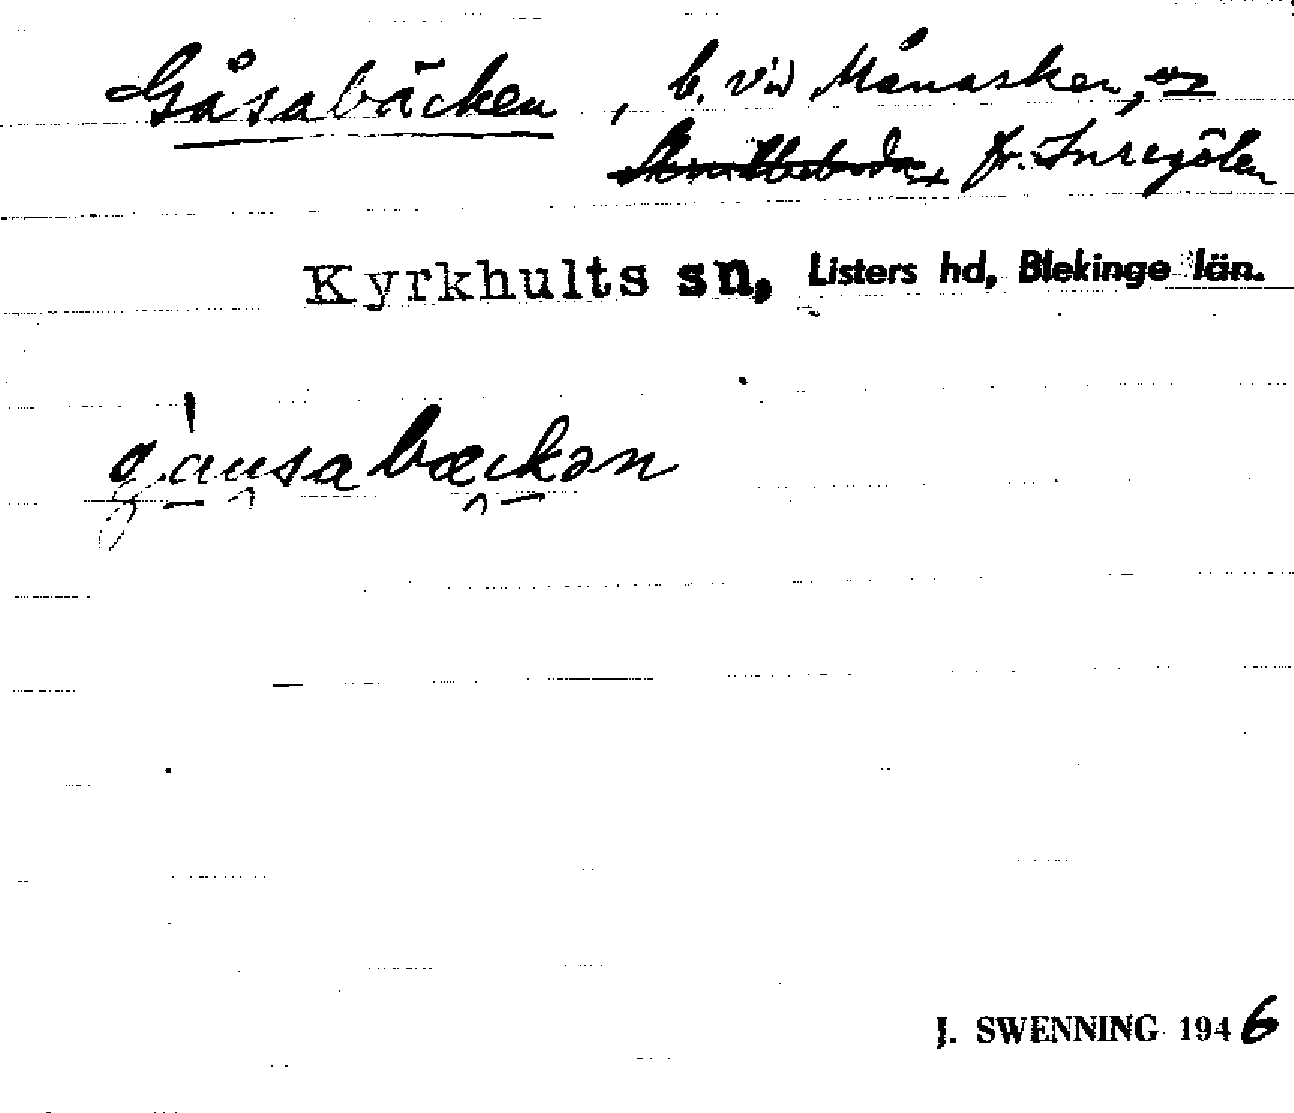 Gåsabäcken, b. vid Månasken,
fr. Inregölen
Kyrkhults sn, Listers hd, Blekinge län.
gausabæckən
J. SWENNING 1946